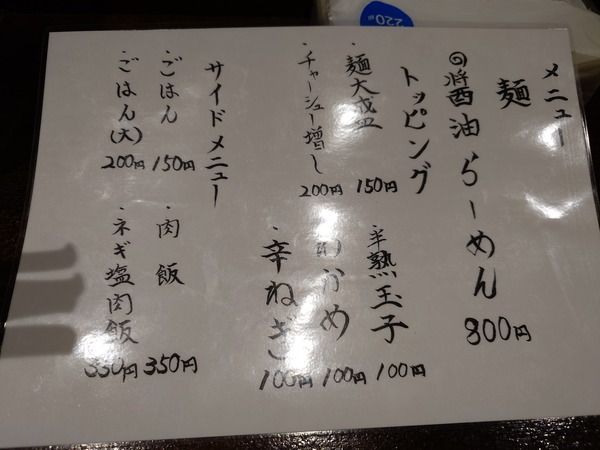 メニュー
麺
◎醤油らーめん 800円
トッピング
・麺大盛 150円
・チャーシュー増し 200円
・半熟玉子 100円
わかめ 100円
・辛ねぎ 100円
サイドメニュー
・ごはん 150円
・ごはん(大) 200円
・肉飯 350円
・ネギ塩肉飯 350円
220